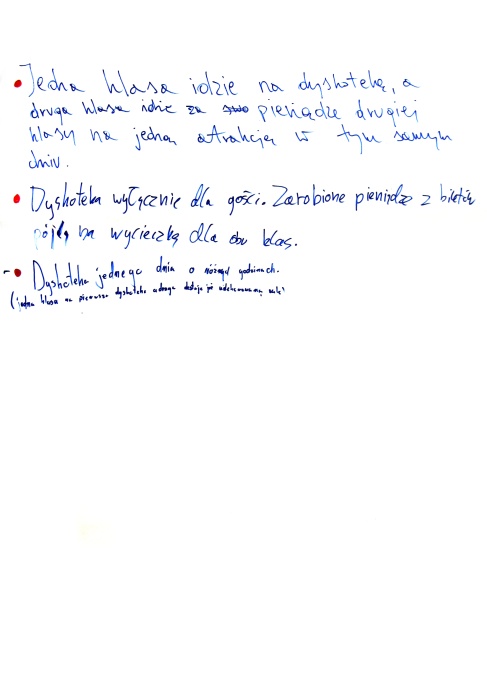 • Jedna klasa idzie na dyskotekę, a
druga klasa idzie za pieniądze drugiej
klasy na jedną atrakcję w tym samym
dniu.
• Dyskoteka wyłącznie dla gości. Zarobione pieniądze z biletów
pójdą na wycieczkę dla obu klas.
- • Dyskoteka jednego dnia o różnych godzinach.
(jedna klasa ma pierwsza dyskotekę a druga dostaje już udekorowaną salę)